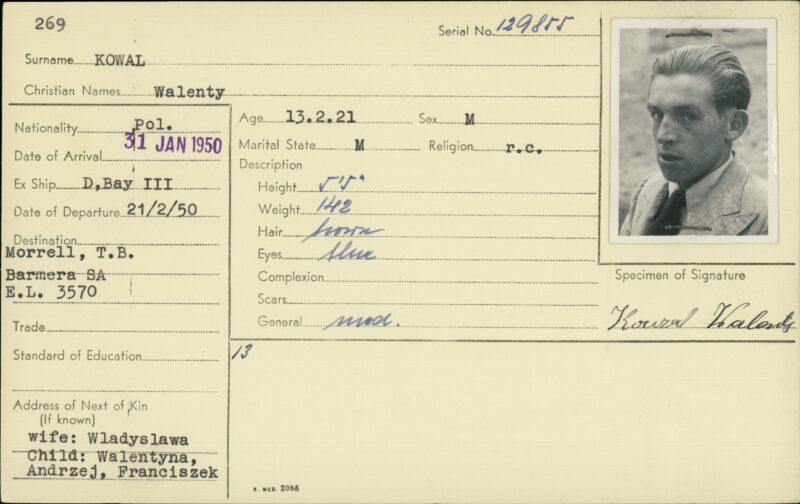 269
Serial No. 129855
Surname KOWAL
Christian Names Walenty
Nationality Pol.
Date of Arrival 31 JAN 1950
Ex Ship D,Bay III
Date of Departure 21/2/50
Destination
Morrell, T.B.
Barmera SA
E.L. 3570
Trade
Standard of Education
Address of Next of Kin
(If known)
wife: Wladyslawa
Child: Walentyna,
Andrzej, Franciszek
Age 13.2.21 Sex M
Marital State M Religion r.c.
Description
Height 5'5"
Weight 142
Hair brown
Eyes blue
Complexion
Scars
General med.
13
Specimen of Signature
Kowal Walenty
S. MCD. 2085